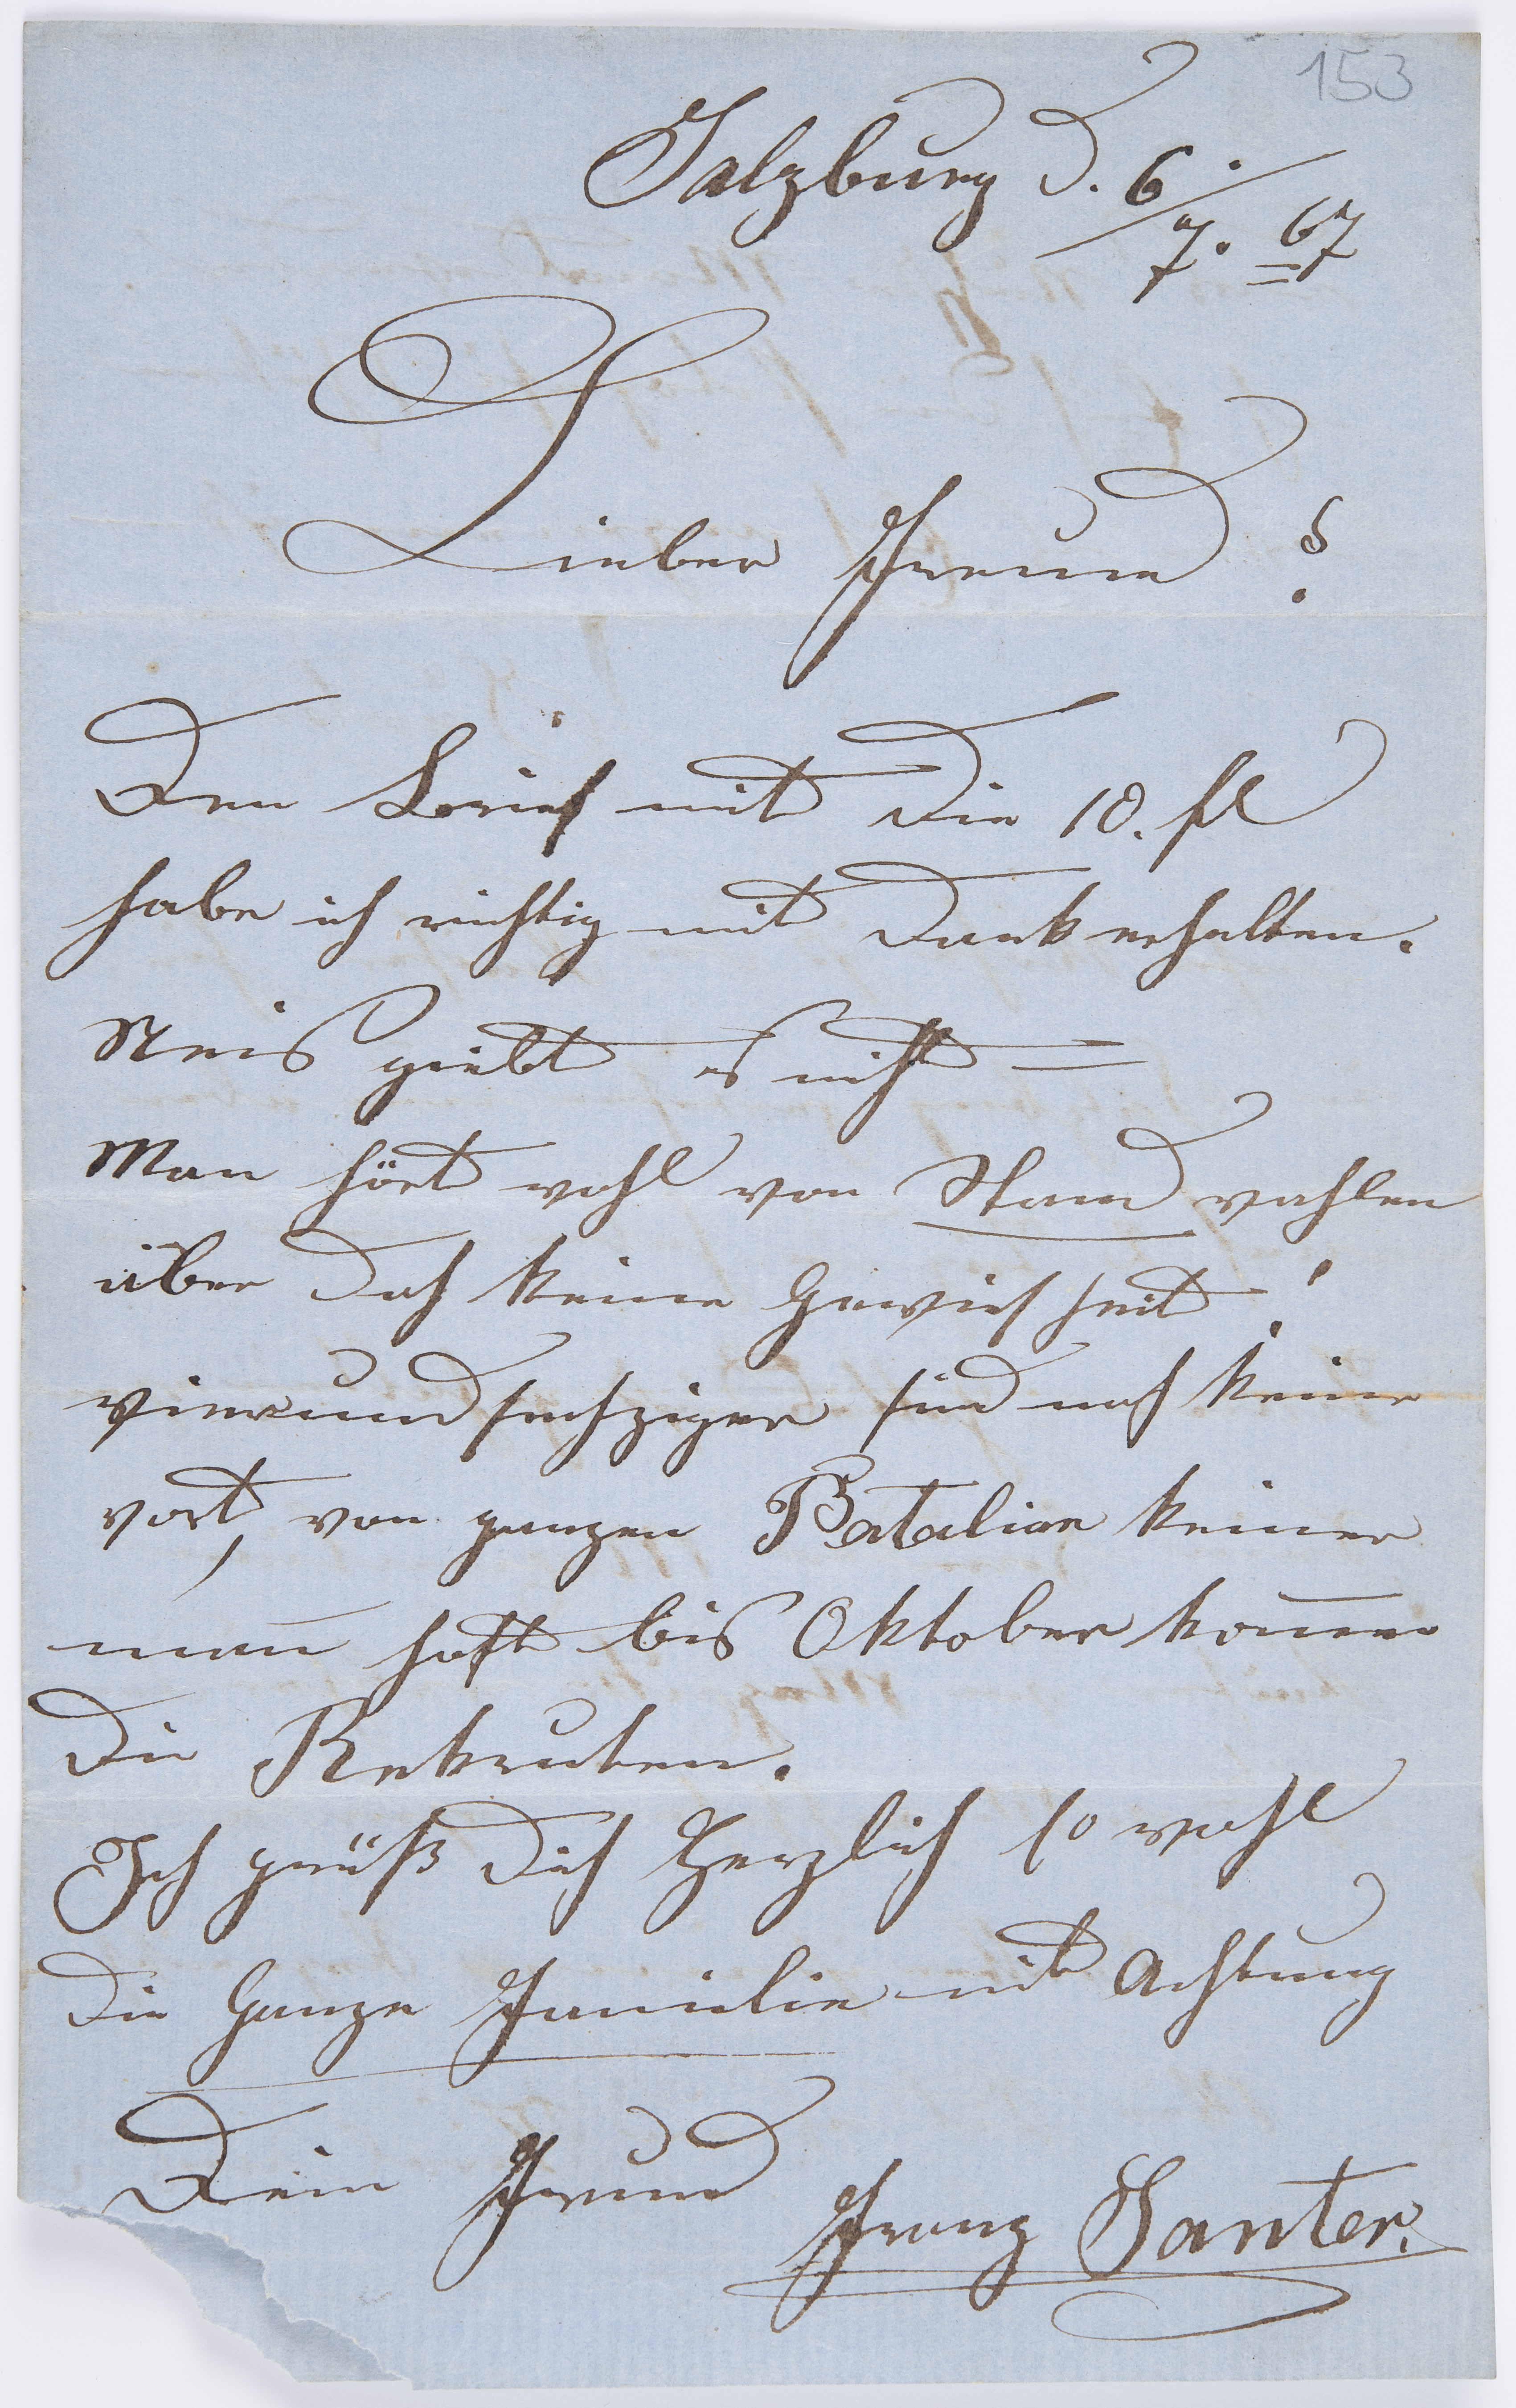 153
Salzburg d. 6./7. 67
Lieber Freund!
Den Brief mit die 10. fl
habe ich richtig mit Dank erhalten.
Neis giebt es nicht =
Man hört wohl von Stand wahlen
über doch keine Gewisheit!
vierundsechziger sind noch keine
vort, von ganzen Batalion keiner
man hoft bis Oktober kom̄en
die Rekruten.
Ich grüß dich Herzlich so wohl
die Ganze Familie mit Achtung
Dein Freund
Franz Santer.